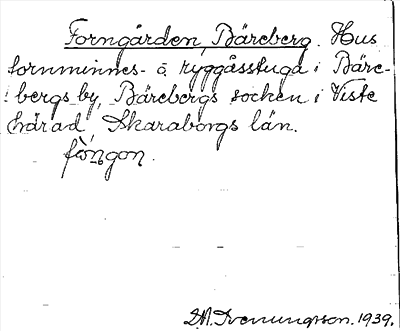 Forngården, Bäreberg. Hus
fornminnes- o ryggåsstuga i Bäre-
bergs by, Bärebergs socken i Viste
härad, Skaraborgs län.
fò̀ngon.
1939.